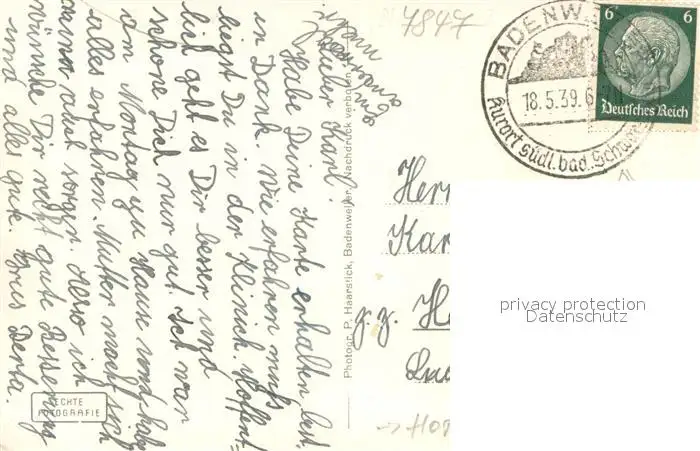 7847
BADENW
18.5.39.6
Kurort südl. bad. Schw
6 6
Deutsches Reich
Lieber Karl.
Habe Deine Karte erhalten best.
in Dank. Wie erfahren muß
liegst Du in der Klinick. Hoffent=
lich geht es Dir besser und
schone Dich nur gut. Ich war
am Montag zu Hause und habe
alles erfahren. Mutter macht sich
sorgen. Also ich
wünsche Dir recht gute Besserung
und alles gute. Grus Berta.
Photogr. P. Haarstick, Badenweiler. Nachdruck verboten.
ECHTE
FOTOGRAFIE
Herr
Kar
z.Z. H
privacy protection
Datenschutz